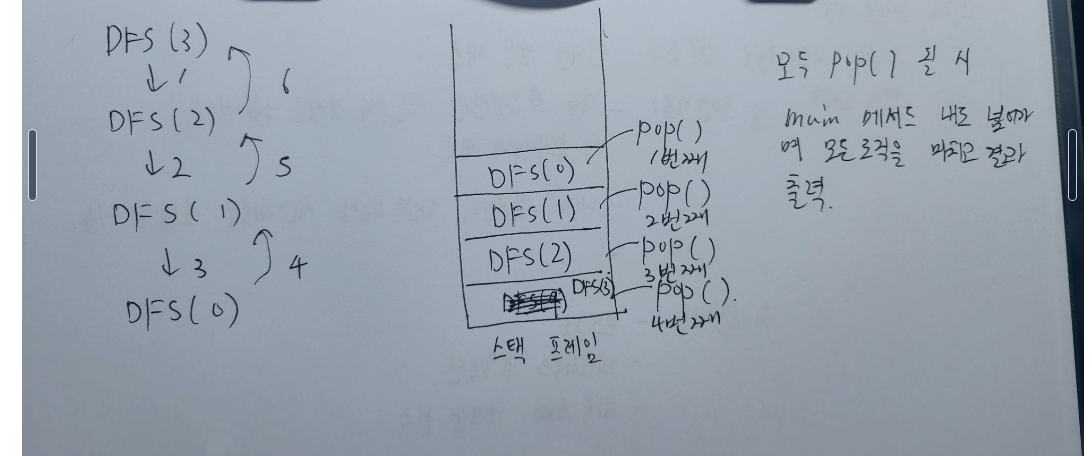 DFS(3)
↓ 1
6
DFS(2)
↓ 2
5
DFS(1)
↓ 3
4
DFS(0)
DFS(0)
pop()
1번째
DFS(1)
pop()
2번째
DFS(2)
pop()
3번째
DFS(3)
pop().
4번째
스택 프레임
모두 pop() 될 시
main 에서드
며 모든로직을 마치고 결과
출력.